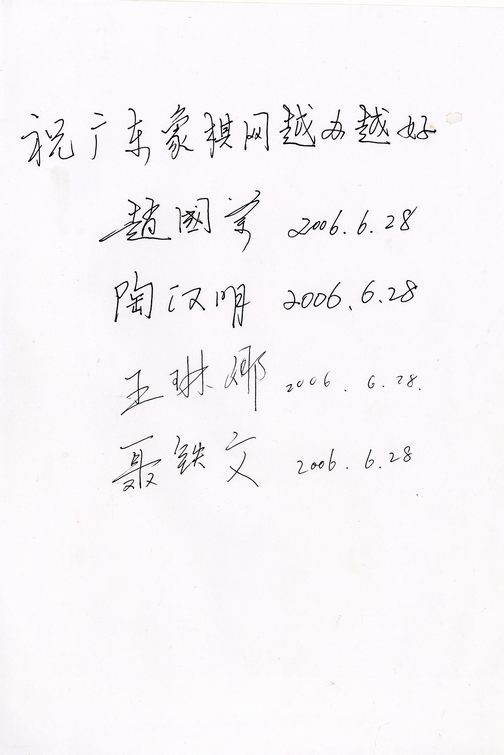 祝广东象棋网越办越好
趙國榮 2006.6.28
陶汉明 2006.6.28
王琳娜 2006.6.28.
聂铁文 2006.6.28